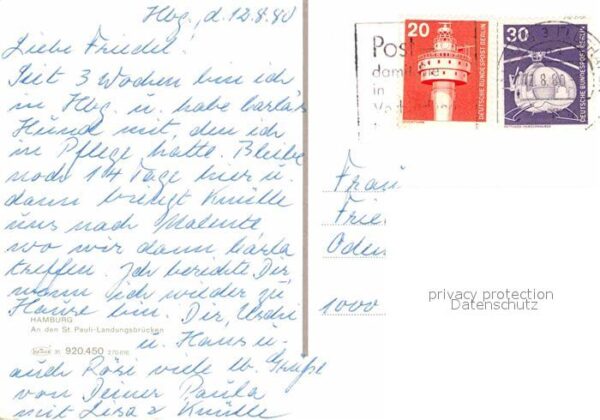 Hbg., d. 12.8.80
Liebe Friedel!
Seit 3 Wochen bin ich
in Hbg. u. habe Carla's
Hund mit, den ich
in Pflege hatte. Bleibe
noch 14 Tage hier u.
dann bringt Knülle
uns nach Malente
wo wir dann Carla
treffen. Ich berichte Dir
wenn ich wieder zu
Hause bin. Dir,
u. Hans u.
auch Rosi viele lb. Grüße
von Deiner Paula
mit Lisa & Knülle
HAMBURG
An den St. Pauli-Landungsbrücken
920.450
Post
damit
in
20
DEUTSCHE BUNDESPOST BERLIN
30
DEUTSCHE BUNDESPOST BERLIN
8.80
Frau
Frie
Oden
1000
privacy protection
Datenschutz